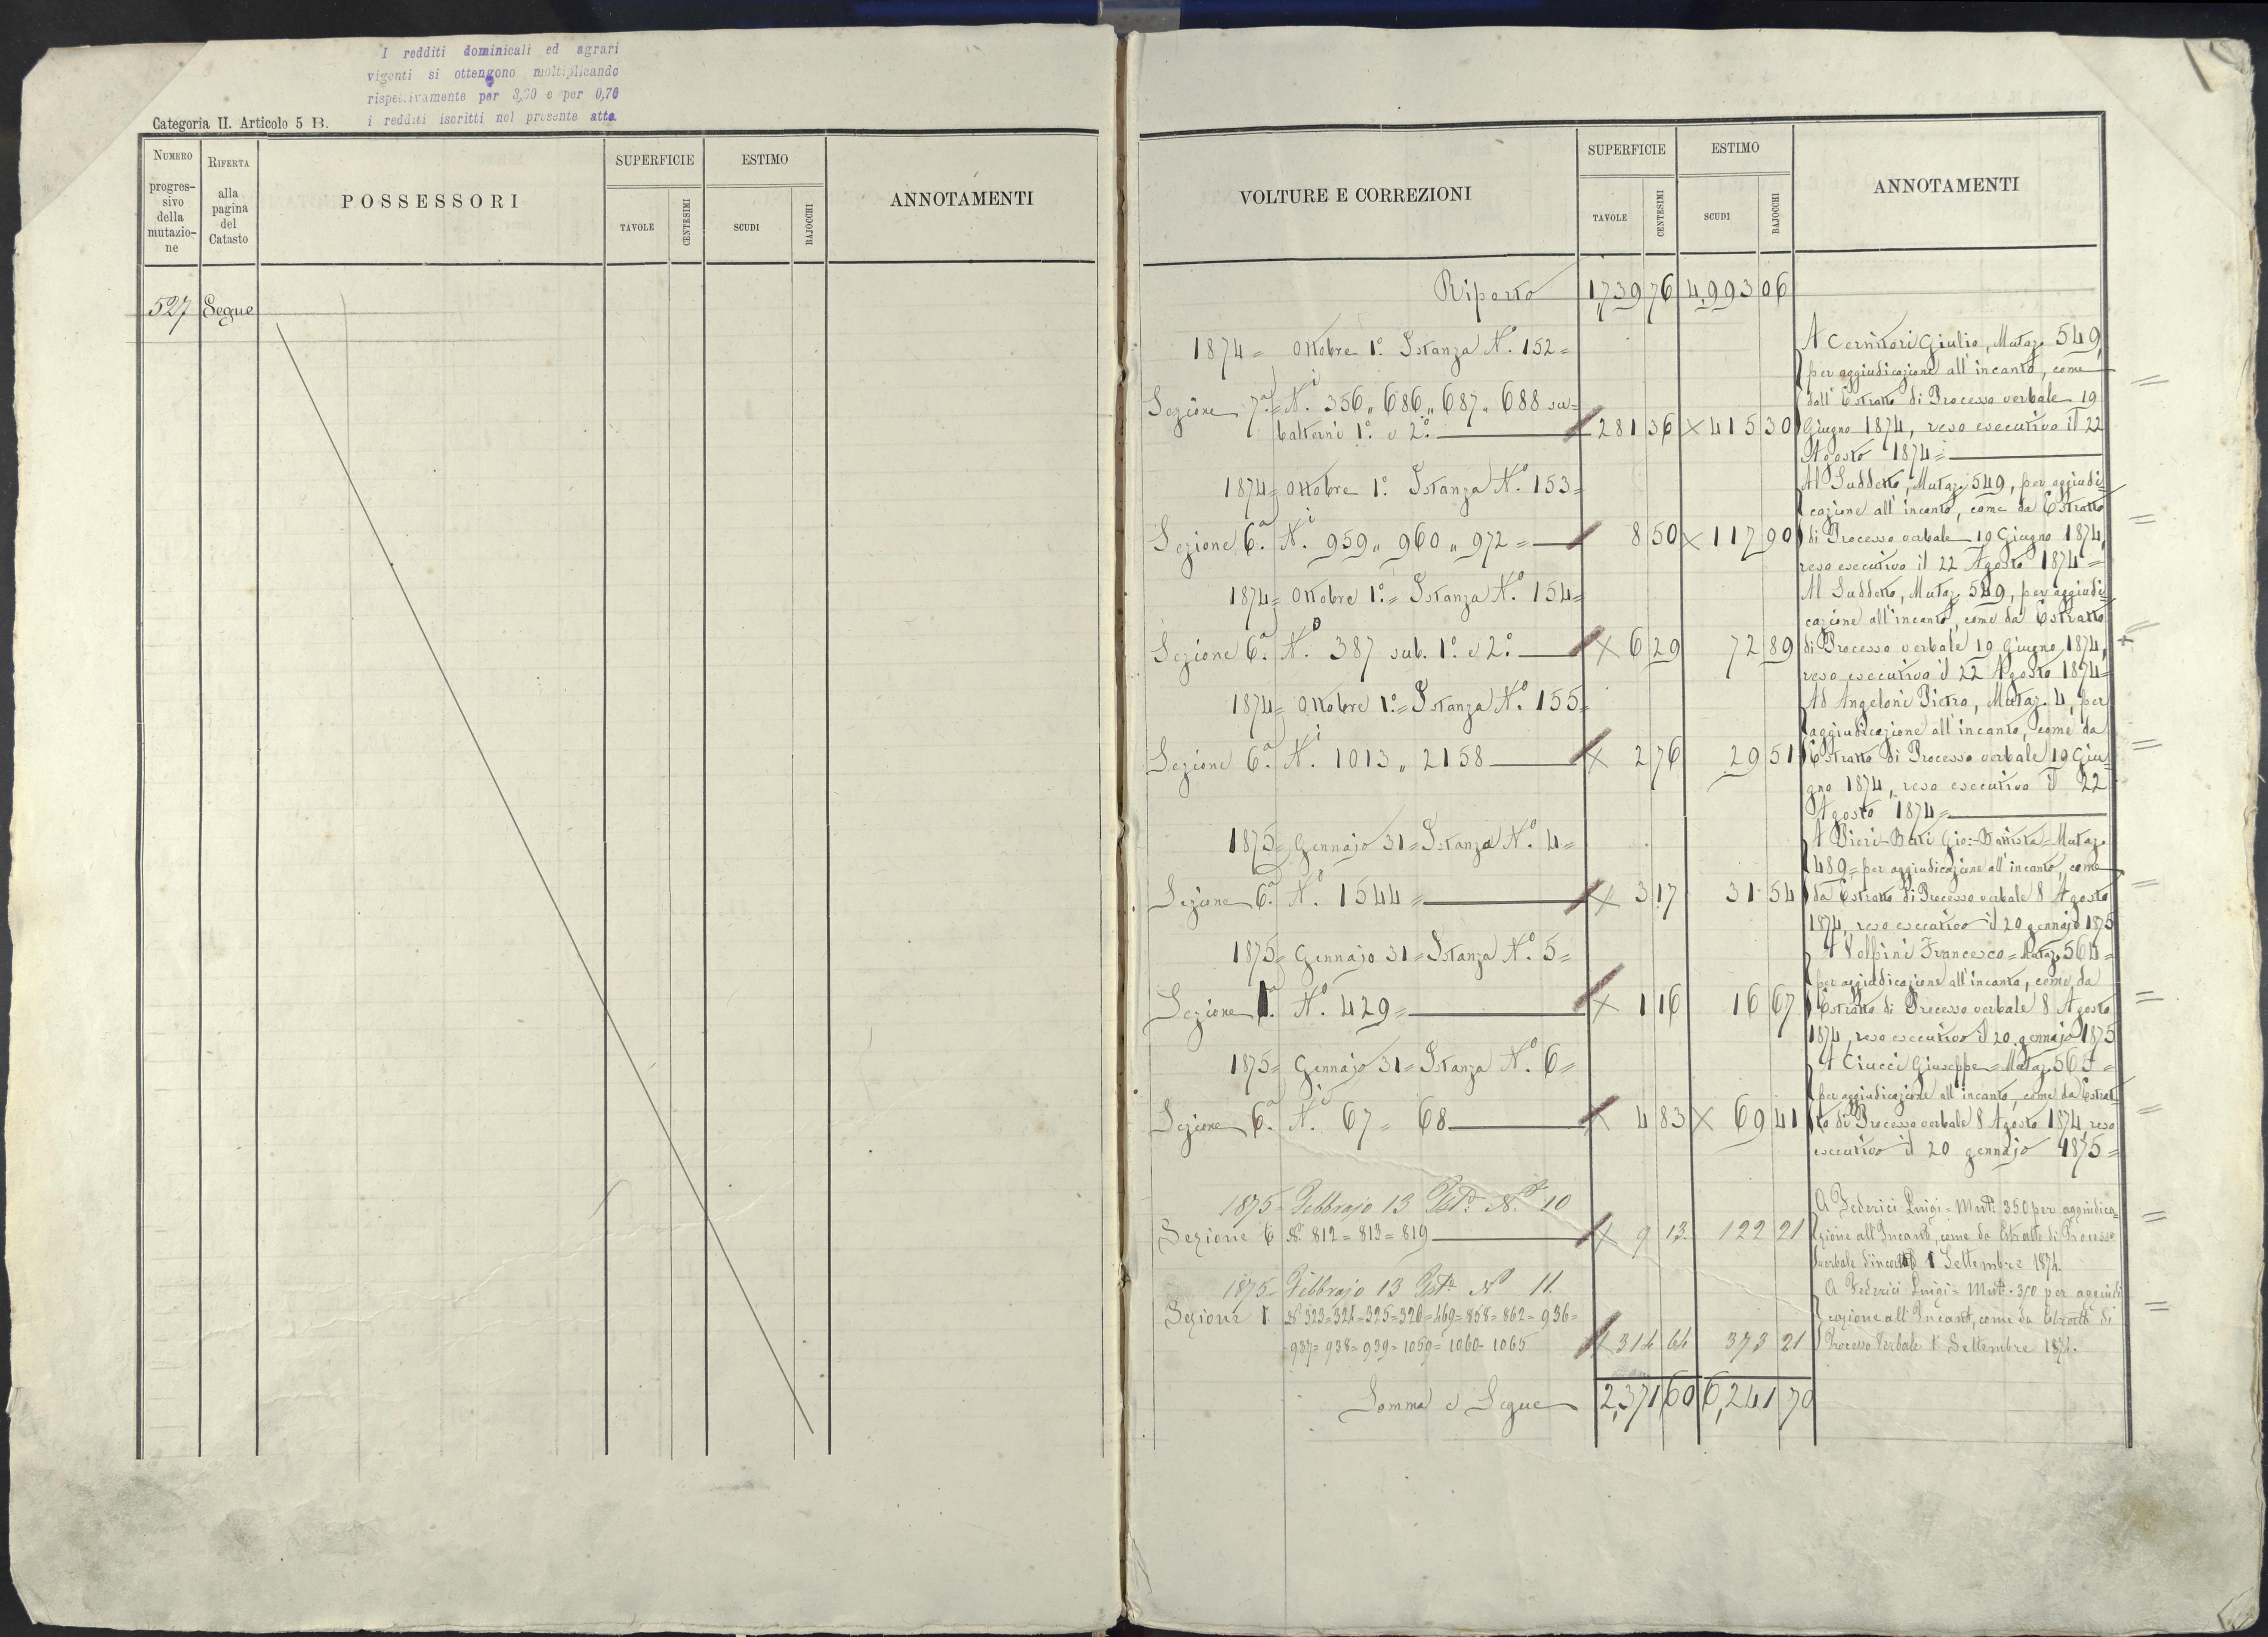 I redditi dominicali ed agrari
vigenti si ottengono moltiplicando
rispettivamente per 3,60 e per 0,70
i redditi iscritti nel presente atto.
Categoria II. Articolo 5 B.
NUMERO progres-sivo della mutazio-ne
RIFERTA alla pagina del Catasto
POSSESSORI
SUPERFICIE
TAVOLE
CENTESIMI
ESTIMO
SCUDI
BAJOCCHI
ANNOTAMENTI
527 Segue
VOLTURE E CORREZIONI
SUPERFICIE
TAVOLE
CENTESIMI
ESTIMO
SCUDI
BAJOCCHI
ANNOTAMENTI
Riporto 1,739 76 4,993 06
1874= Ottobre 1º. Istanza Nº. 152=
Sezione 7ª= Ni. 356,, 686,, 687,, 688 su=
balterni 1º. e 2º. 281 36 × 415 30
A Cerintori Giulio, Mutaz. 549,
per aggiudicazione all'incanto, come
dall'Estratto di Processo verbale 19
Giugno 1874, reso esecutivo il 22
Agosto 1874=
1874= Ottobre 1º. Istanza Nº. 153=
Sezione 6ª. Ni. 959,, 960,, 972= 8 50 × 117 90
Al Suddetto, Mutaz. 549, per aggiudi=
cazione all'incanto, come da Estratto
di Processo verbale 19 Giugno 1874,
reso esecutivo il 22 Agosto 1874=
1874= Ottobre 1º.= Istanza Nº. 154=
Sezione 6ª. Nº. 387 sub. 1º. e 2º. × 6 29 72 89
Al Suddetto, Mutaz. 549, per aggiudi=
cazione all'incanto, come da Estratto
di Processo verbale 19 Giugno 1874,
reso esecutivo il 22 Agosto 1874=
1874= Ottobre 1º.= Istanza Nº. 155=
Sezione 6ª. Ni. 1013,, 2158 × 2 76 29 51
Ad Angeloni Pietro, Mutaz. 4, per
aggiudicazione all'incanto, come da
Estratto di Processo verbale 19 Giu=
gno 1874, reso esecutivo il 22
Agosto 1874=
1875= Gennajo 31= Istanza Nº. 4=
Sezione 6ª. Nº. 1544= × 3 17 31 54
A Pieri-Buti Gio:-Battista= Mutaz.
489= per aggiudicazione all'incanto, come
da Estratto di Processo verbale 8 Agosto
1874, reso esecutivo il 20 gennajo 1875
1875= Gennajo 31= Istanza Nº. 5=
Sezione 1ª. Nº. 429= × 1 16 16 67
A Volpini Francesco= Mutaz. 564=
per aggiudicazione all'incanto, come da
Estratto di Processo verbale 8 Agosto
1874, reso esecutivo il 20 gennajo 1875
1875= Gennajo 31= Istanza Nº. 6=
Sezione 6ª. Ni. 67= 68 × 4 83 × 69 41
A Ciucci Giuseppe= Mutaz. 565=
per aggiudicazione all'incanto, come da Estrat=
to di Processo verbale 8 Agosto 1874, reso
esecutivo il 20 gennajo 1875=
1875= Febbrajo 13 Ist.ª Nº 10
Sezione 6 Ni. 812= 813= 819 × 9 13 122 21
A Federici Luigi= Mut. 350 per aggiudica=
zione all'Incanto, come da Estratto di Processo
verbale d'incanto 1 Settembre 1874.
1875= Febbrajo 13 Ist.ª Nº 11.
Sezione 1 Ni 323= 324= 325= 326= 469= 858= 862= 936=
937= 938= 939= 1059= 1060= 1065 × 314 64 373 21
A Federici Luigi= Mut. 350 per aggiudi
cazione all'Incanto, come da Estratto di
Processo Verbale 1º Settembre 1874.
Somma e Segue 2,371 60 6,241 70